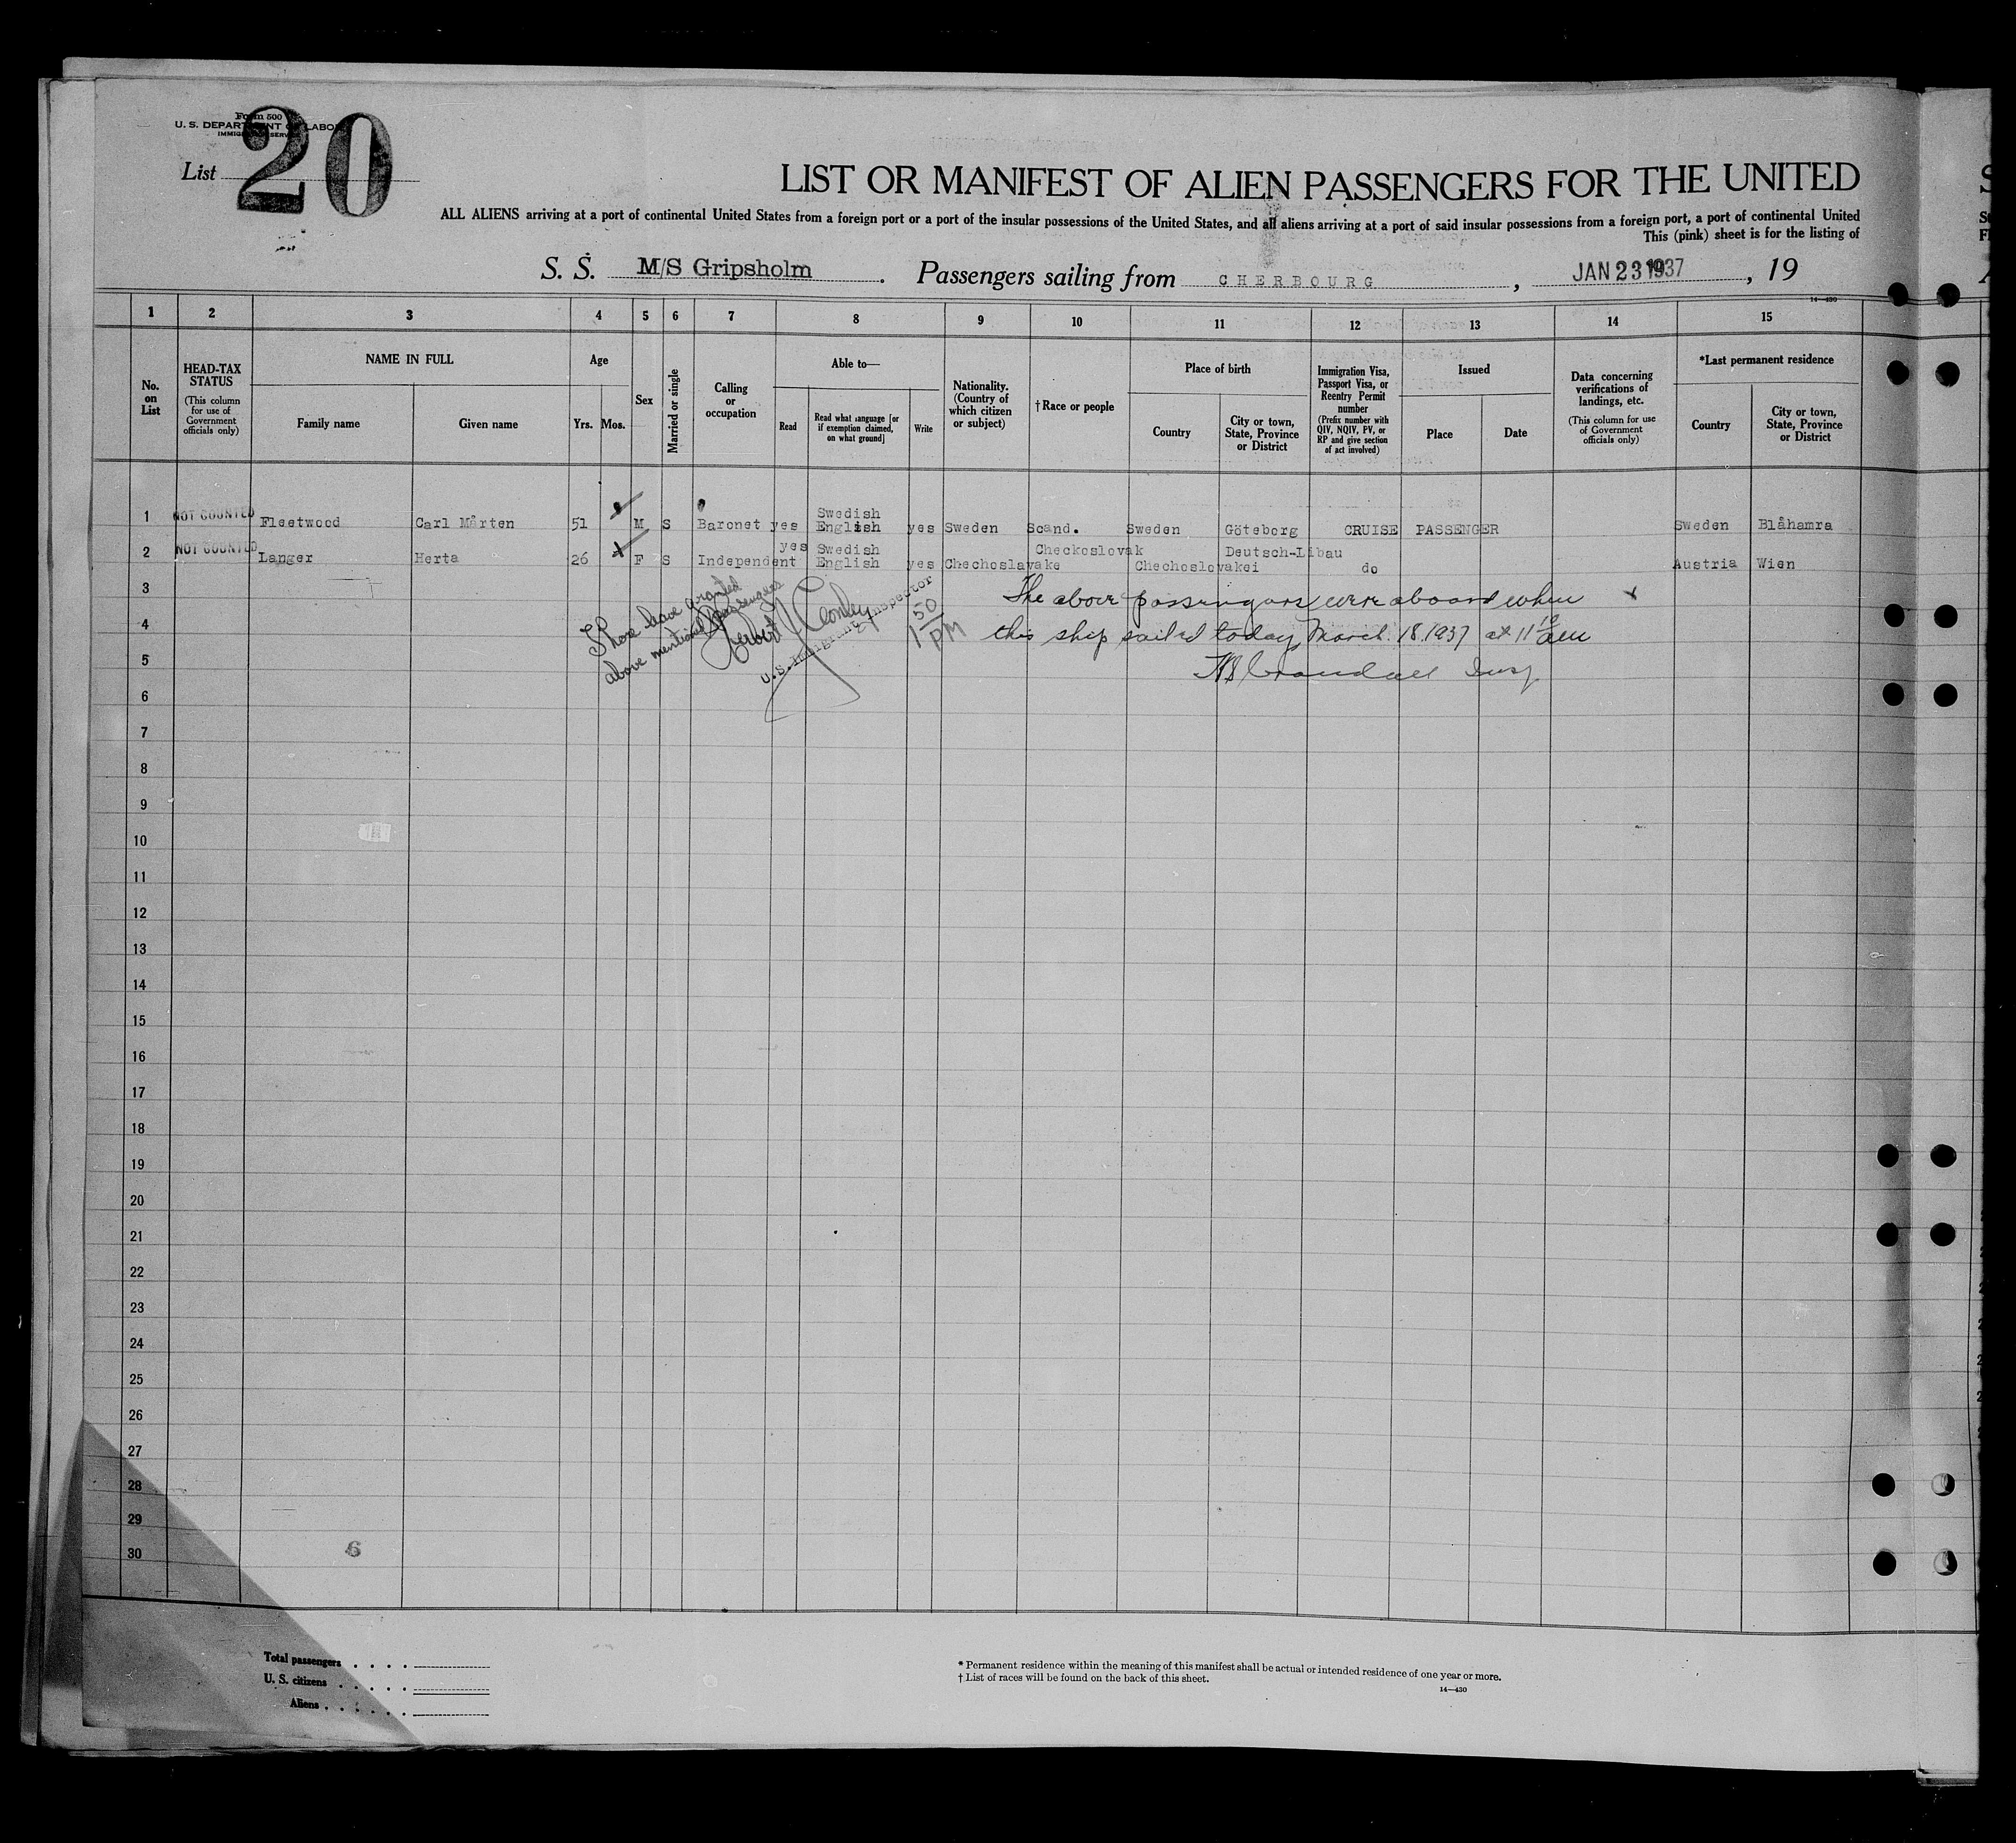 Form 500
U. S. DEPARTMENT OF LABOR
IMMIGRATION SERVICE
List 20
LIST OR MANIFEST OF ALIEN PASSENGERS FOR THE UNITED
ALL ALIENS arriving at a port of continental United States from a foreign port or a port of the insular possessions of the United States, and all aliens arriving at a port of said insular possessions from a foreign port, a port of continental United
This (pink) sheet is for the listing of
S. S. M/S Gripsholm. Passengers sailing from CHERBOURG, JAN 23 1937, 19
14—430
1 2 3 4 5 6 7 8 9 10 11 12 13 14 15
No. on List
HEAD-TAX STATUS
(This column for use of Government officials only)
NAME IN FULL
Family name
Given name
Age
Yrs. Mos.
Sex
Married or single
Calling or occupation
Able to—
Read
Read what language [or if exemption claimed, on what ground]
Write
Nationality. (Country of which citizen or subject)
†Race or people
Place of birth
Country
City or town, State, Province or District
Immigration Visa, Passport Visa, or Reentry Permit number
(Prefix number with QIV, NQIV, PV, or RP and give section of act involved)
Issued
Place
Date
Data concerning verifications of landings, etc.
(This column for use of Government officials only)
*Last permanent residence
Country
City or town, State, Province or District
1 NOT COUNTED Fleetwood Carl Mårten 51 M S Baronet yes Swedish English yes Sweden Scand. Sweden Göteborg CRUISE PASSENGER Sweden Blåhamra
2 NOT COUNTED Langer Herta 26 F S Independent yes Swedish English yes Chechoslavake Checkoslovak Chechoslovakei Deutsch-Libau do Austria Wien
3 The above passengers were aboard when
4 this ship sailed today March 18, 1937 at 11 10 am
Shore leave granted
above mentioned passengers
U.S. Immigrant Inspector
1 50 PM
5
6
7
8
9
10
11
12
13
14
15
16
17
18
19
20
21
22
23
24
25
26
27
28
29
30
6
Total passengers . . . .
U. S. citizens . . . . .
Aliens . . . . . .
* Permanent residence within the meaning of this manifest shall be actual or intended residence of one year or more.
† List of races will be found on the back of this sheet.
14—430